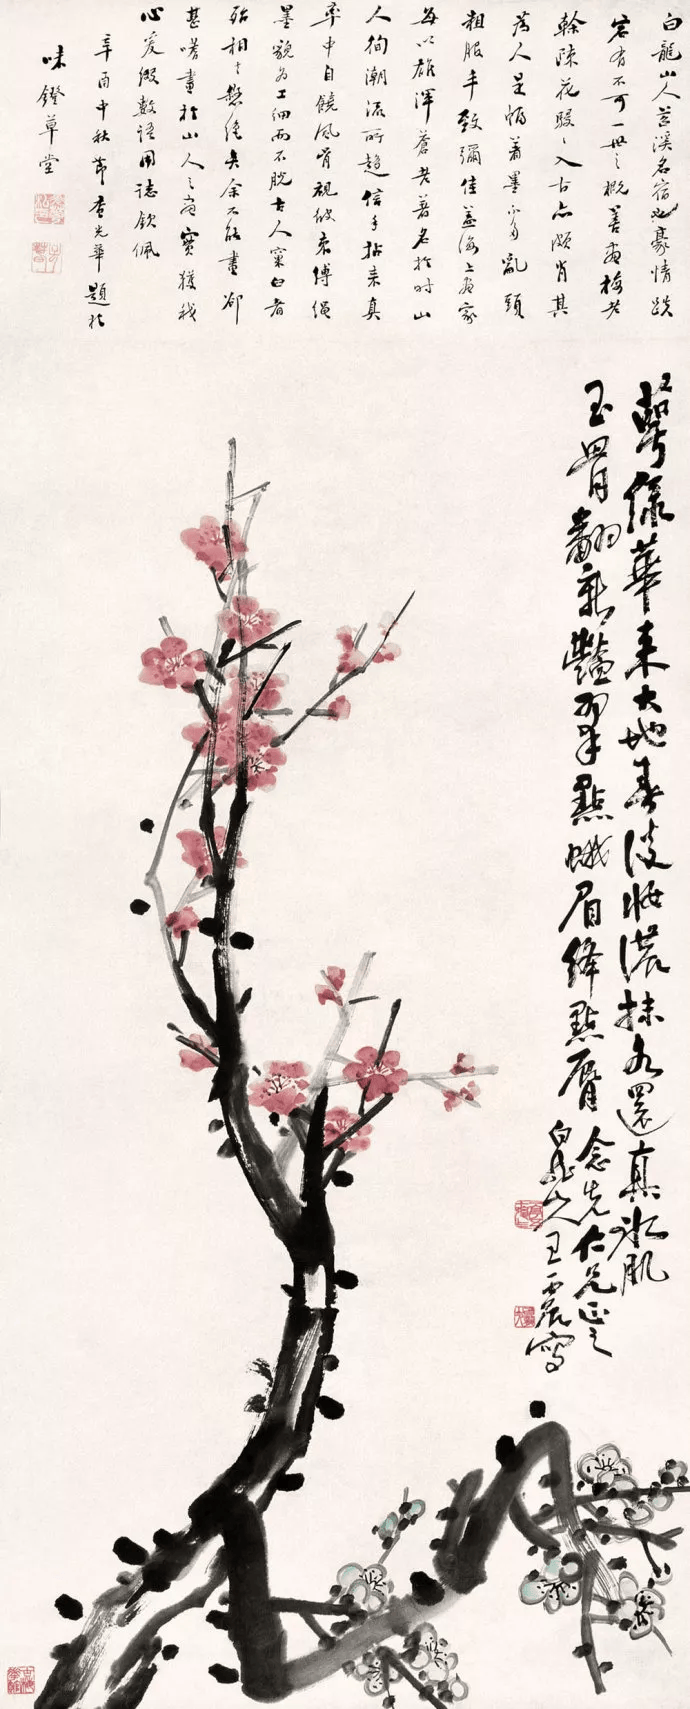 白龍山人苕溪名宿也豪情跌
宕有不可一世之概善畫梅老
榦陳花駸駸入古亦頗肖其
為人足悟著墨不多亂頭
粗服手致彌佳蓋海上畫家
每以雄渾蒼老著名於時山
人徇潮流所趨信手拈來真
率中自饒風骨視彼束縛繩
墨貌為工細而不脫古人窠臼者
殆相去懸絕矣余不能畫卻
甚嗜畫於山人之畫寶獲我
心爰綴數語用誌欽佩
辛酉中秋節 光華題於
味鐙草堂
萼綠華來大地春淡妝濃抹各還真冰肌
玉骨翻新豔翠點蛾眉絳點脣
念先仁兄正之
白龍山人王震寫